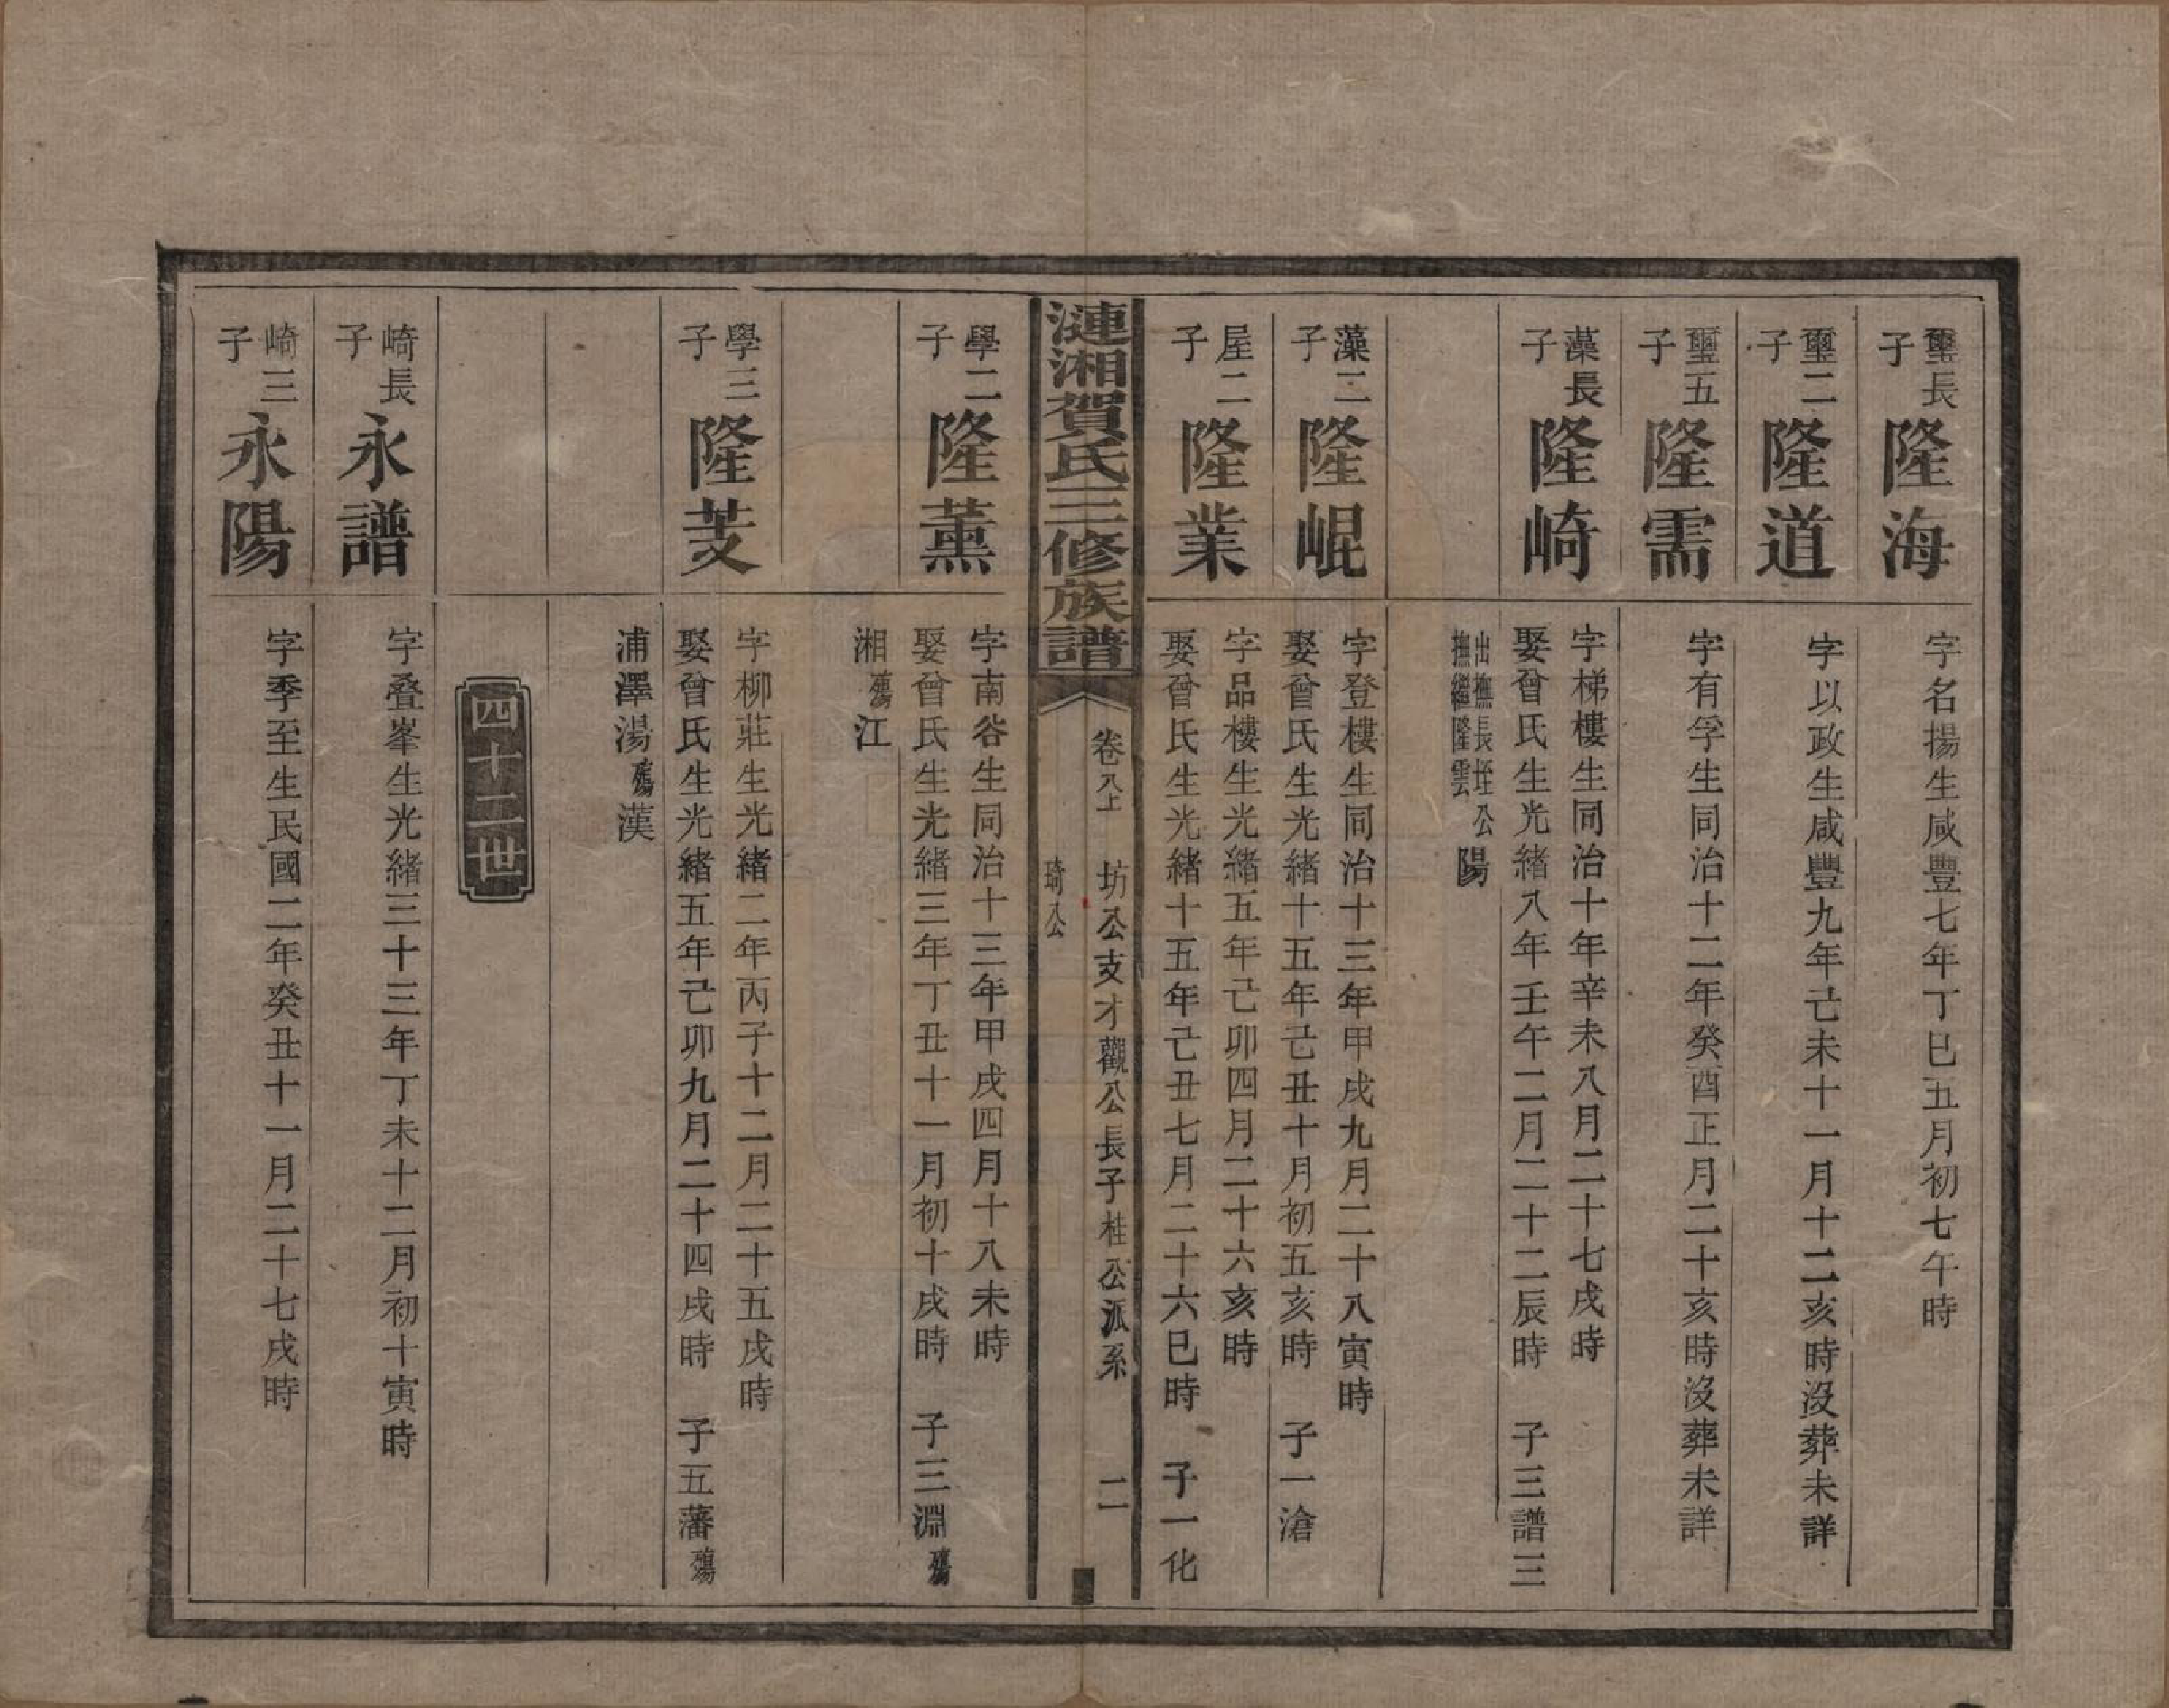 璽長子
隆海
字名揚生咸豐七年丁巳五月初七午時
璽二子
隆道
字以政生咸豐九年己未十一月十二亥時沒葬未詳
璽五子
隆需
字有孚生同治十二年癸酉正月二十亥時沒葬未詳
藻長子
隆崎
字梯樓生同治十年辛未八月二十七戌時
娶曾氏生光緒八年壬午二月二十二辰時 子三譜三
出撫長坵公
撫繼隆雲
陽
藻二子
隆崐
字登樓生同治十三年甲戌九月二十八寅時
娶曾氏生光緒十五年己丑十月初五亥時 子一滄
屋二子
隆業
字品樓生光緒五年己卯四月二十六亥時
娶曾氏生光緒十五年己丑七月二十六巳時 子一化
漣湘賀氏三修族譜
卷八上
坊公支才觀公長子桂公派系
琦公
二
學二子
隆薰
字南谷生同治十三年甲戌四月十八未時
娶曾氏生光緒三年丁丑十一月初十戌時 子三淵殤
湘殤江
學三子
隆芰
字柳莊生光緒二年丙子十二月二十五戌時
娶曾氏生光緒五年己卯九月二十四戌時 子五藩殤
浦澤湯殤漢
四十二世
崎長子
永譜
字叠峯生光緒三十三年丁未十二月初十寅時
崎三子
永陽
字季至生民國二年癸丑十一月二十七戌時